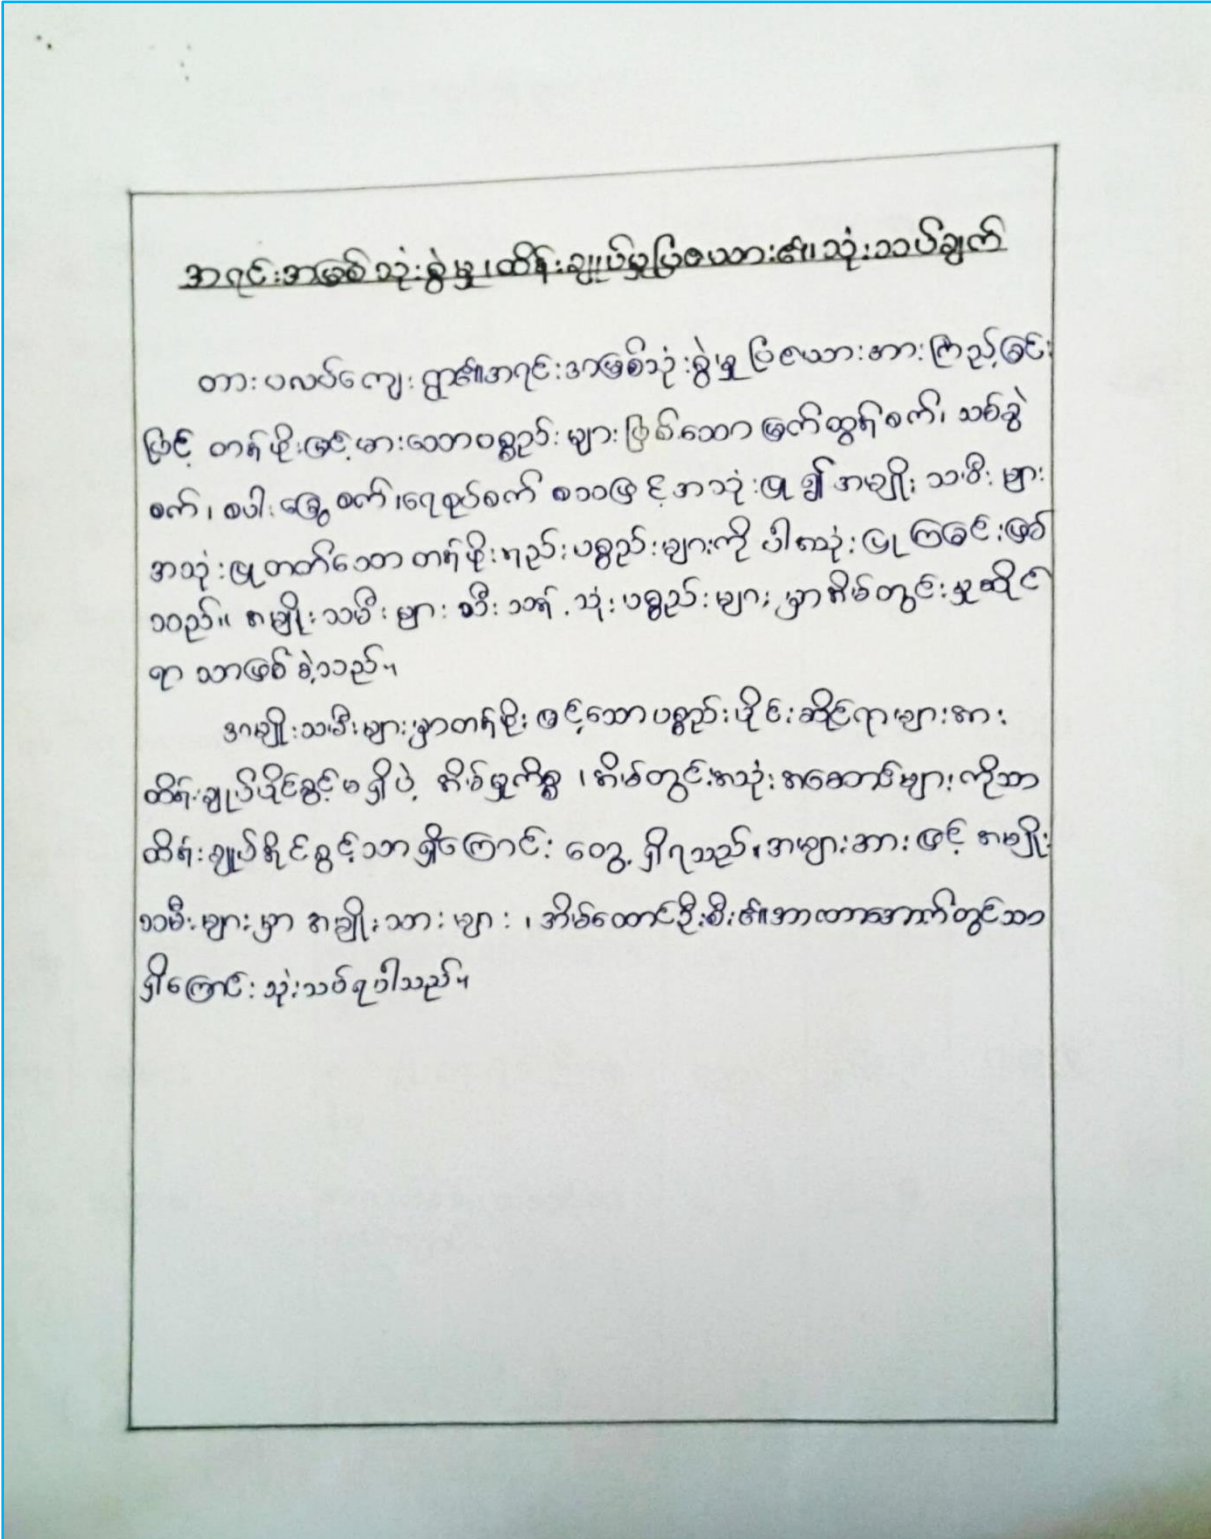 အရင်းအမြစ်သုံးစွဲမှု၊ ထိန်းချုပ်မှုပြဇယား၏ သုံးသပ်ချက်
တားပလပ်ကျေးရွာ၏ အရင်းအမြစ်သုံးစွဲမှု ပြဇယားအားကြည့်ခြင်း
ဖြင့် တန်ဖိုးမြင့်မားသောပစ္စည်းများဖြစ်သော မြက်ထွန်စက်၊ သစ်ခွဲ
စက်၊ စပါးခြွေစက်၊ ရေစုပ်စက် စသဖြင့်အသုံးပြု၍ အမျိုးသမီးများ
အသုံးပြုတတ်သော တန်ဖိုးနည်းပစ္စည်းများကိုပါသုံးပြုကြခြင်းဖြစ်
သည်။ အမျိုးသမီးများ သီးသန့်သုံးပစ္စည်းများမှာ အိမ်တွင်းမှုဆိုင်
ရာသာဖြစ်ခဲ့သည်။
အမျိုးသမီးများမှာတန်ဖိုးမြင့်သောပစ္စည်းပိုင်းဆိုင်ရာများအား
ထိန်းချုပ်ပိုင်ခွင့်မရှိပဲ့ အိမ်မှုကိစ္စ၊ အိမ်တွင်းအသုံးအဆောင်များကိုသာ
ထိန်းချုပ်နိုင်ခွင့်သာရှိကြောင်း တွေ့ရှိရသည်။ အများအားဖြင့် အမျိုး
သမီးများမှာ အမျိုးသားများ၊ အိမ်ထောင်ဦးစီး၏ အာဏာအောက်တွင်သာ
ရှိကြောင်းသုံးသပ်ရပါသည်။